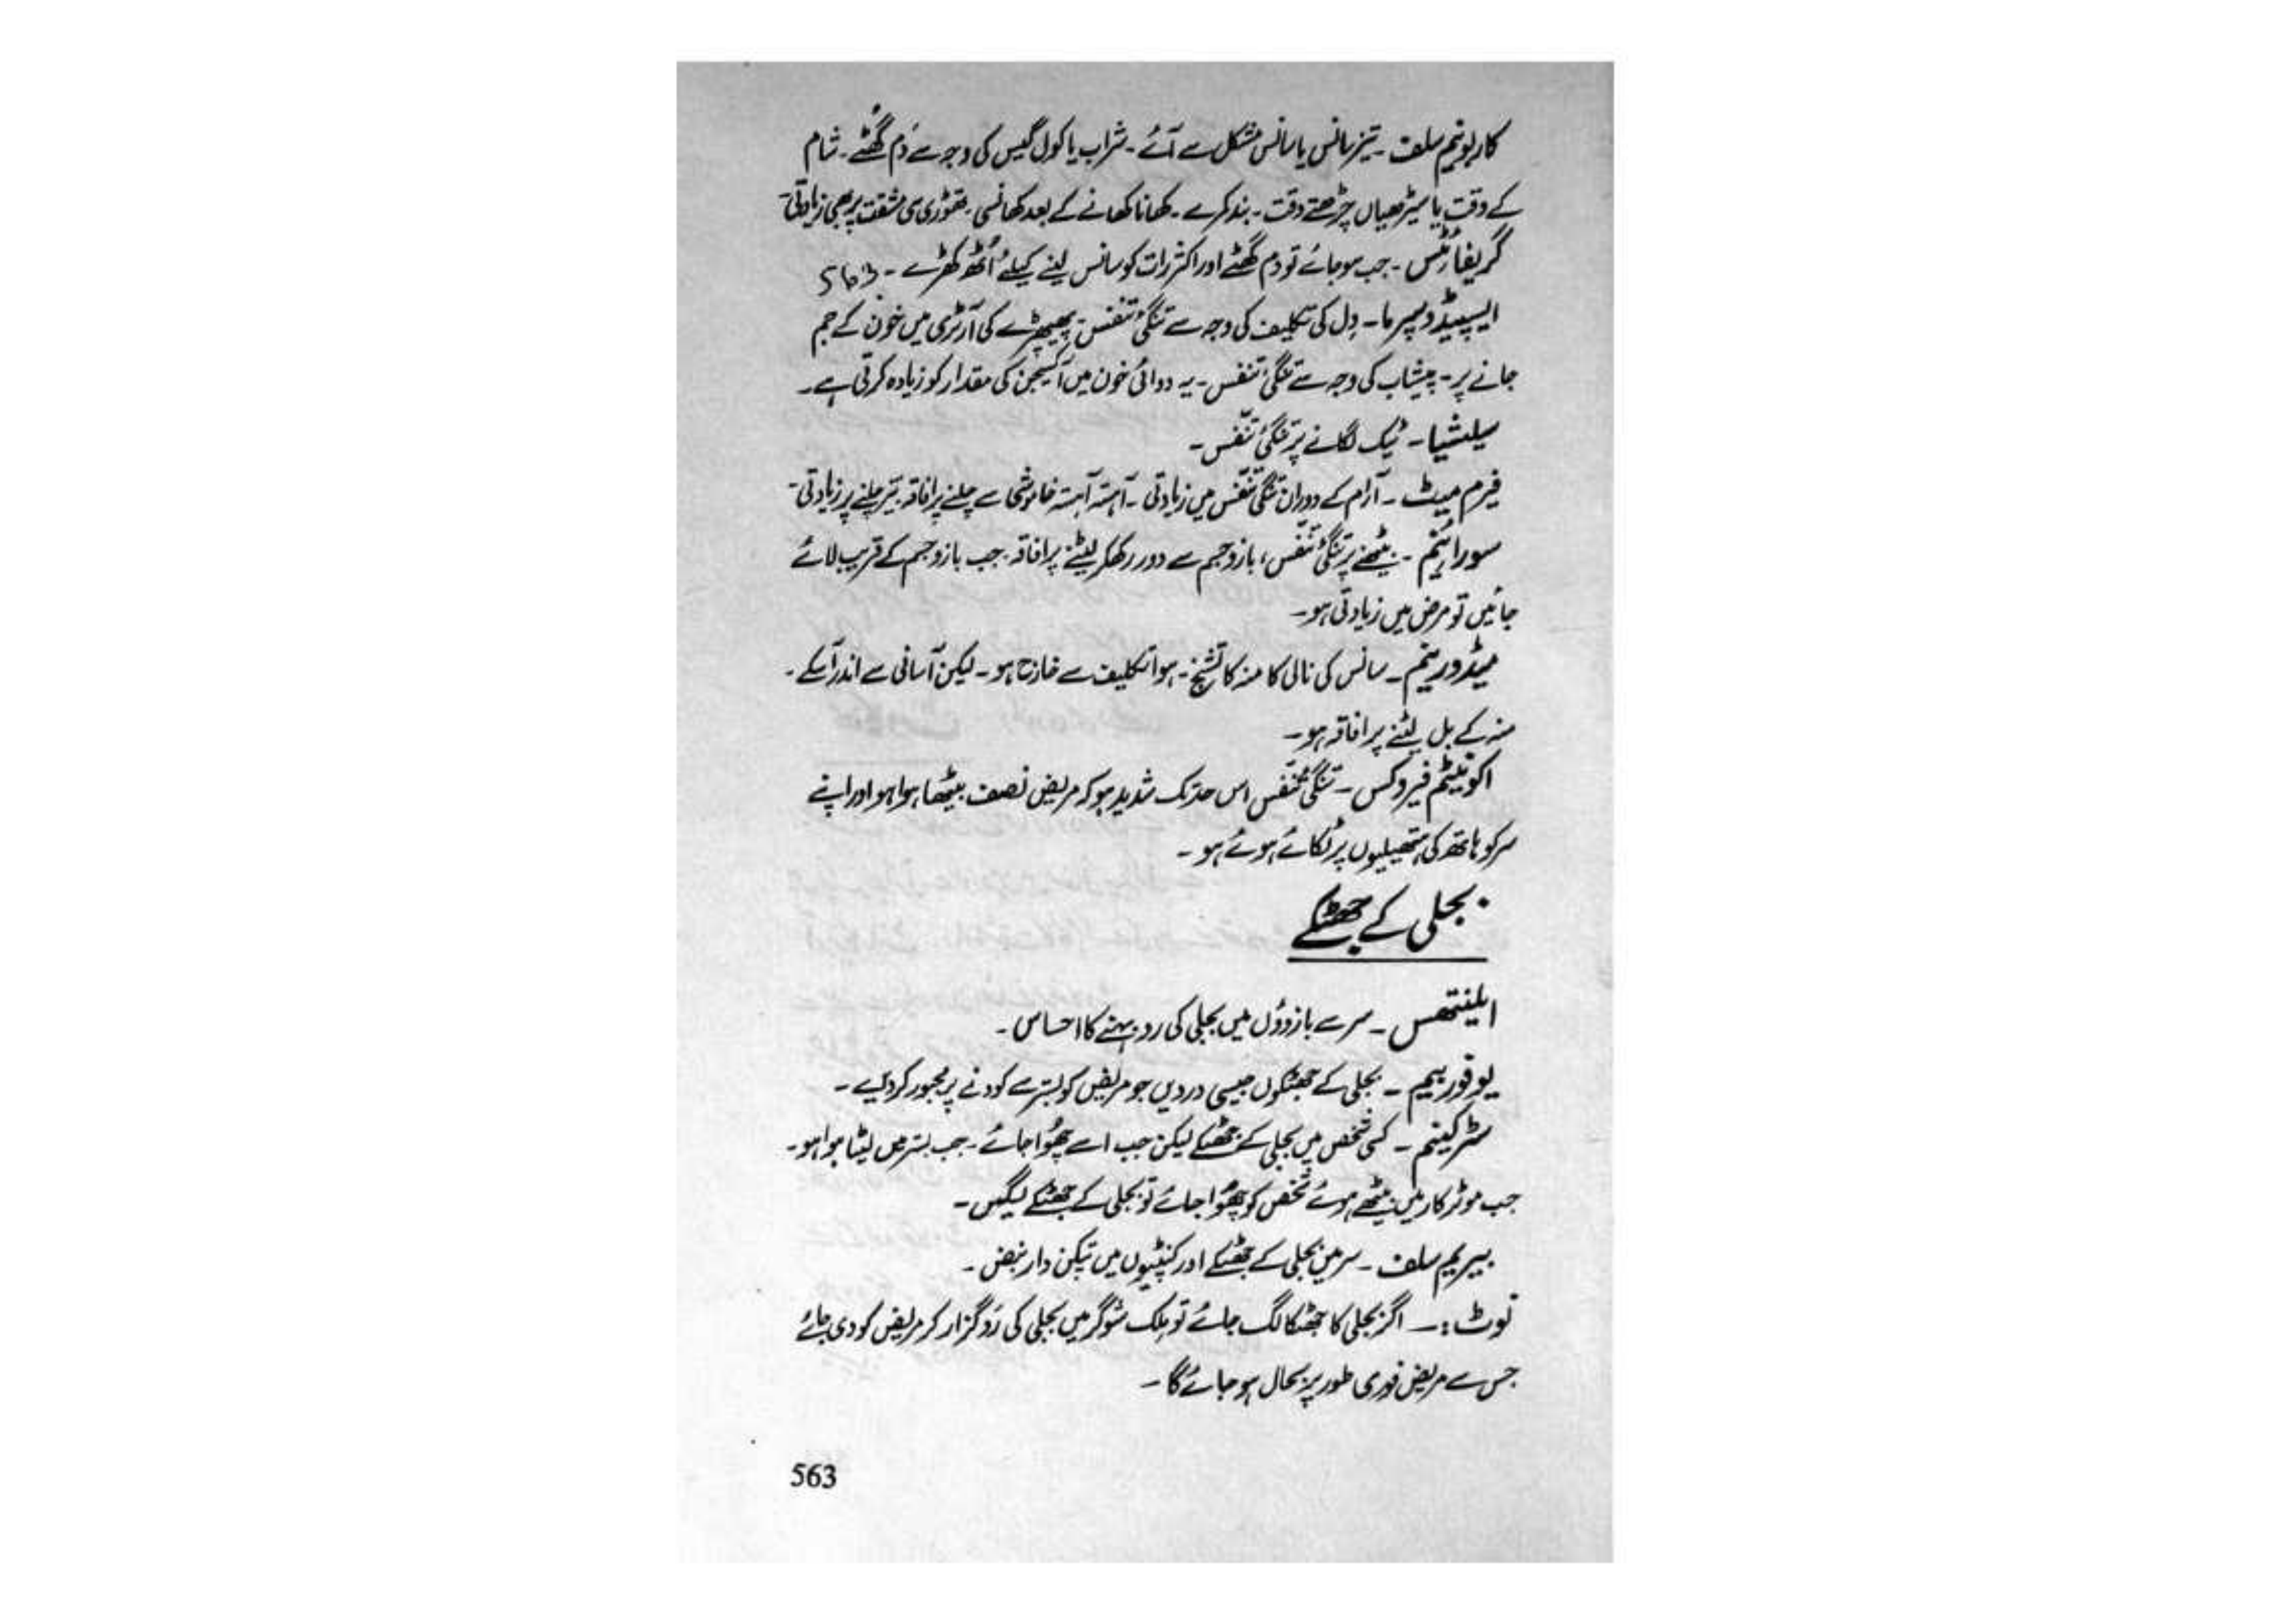 کاربونیم سلف ۔ تیز سانس یا سانس مشکل سے آئے ۔ شراب یا کول گیس کی وجہ سے دَم گھُٹے ۔ شام
کے وقت یا سیڑھیاں چڑھتے وقت ۔ بند کرے ۔ کھانا کھانے کے بعد کھانسی ۔ تھوڑی سی مشقت پر بھی زیادتی ۔
گریفائٹس ۔ جب سو جائے تو دم گھٹے اور اکثر رات کو سانس لینے کیلئے اُٹھ کھڑے ۔
ایسپیڈوسپرما ۔ دِل کی تکلیف کی وجہ سے تنگیٔ تنفس ۔ پھیپھڑے کی آرٹری میں خون کے جم
جانے پر ۔ پیشاب کی وجہ سے تنگیٔ تنفس ۔ یہ دوائی خون میں آکسیجن کی مقدار کو زیادہ کرتی ہے ۔
سیلشیا ۔ ٹیک لگانے پر تنگیٔ تنفّس ۔
فیرم میٹ ۔ آرام کے دوران تنگیٔ تنفّس میں زیادتی ۔ آہستہ آہستہ خاموشی سے چلنے پر افاقہ ۔ تیز چلنے پر زیادتی ۔
سورائنم ۔ بیٹھنے پر تنگیٔ تنفّس، بازو جسم سے دور رکھ کر لیٹنے پر افاقہ ۔ جب بازو جسم کے قریب لائے
جائیں تو مرض میں زیادتی ہو ۔
میڈورینم ۔ سانس کی نالی کا منہ کا تشنج ۔ ہوا تکلیف سے خارج ہو ۔ لیکن آسانی سے اندر آ سکے ۔
منہ کے بل لیٹنے پر افاقہ ہو ۔
اکونیٹم فیروکس ۔ تنگیٔ تنفّس اس حد تک شدید ہو کہ مریض نصف بیٹھا ہوا ہو اور اپنے
سر کو ہاتھ کی ہتھیلیوں پر ٹکائے ہوئے ہو ۔
بجلی کے جھٹکے
ایلینتھس ۔ سر سے بازوؤں میں بجلی کی رو بہنے کا احساس ۔
یوفوربیم ۔ بجلی کے جھٹکوں جیسی دردیں جو مریض کو بستر سے کودنے پر مجبور کر دیں ۔
سٹرکینم ۔ کسی شخص میں بجلی کے جھٹکے لیکن جب اسے چھُوا جائے ۔ جب بستر میں لیٹا ہوا ہو ۔
جب موٹر کار میں بیٹھے ہوئے شخص کو چھُوا جائے تو بجلی کے جھٹکے لگیں ۔
بیریم سلف ۔ سر میں بجلی کے جھٹکے اور کنپٹیوں میں تپکن دار نبض ۔
نوٹ :۔ اگر بجلی کا جھٹکا لگ جائے تو ملک شوگر میں بجلی کی رَو گزار کر مریض کو دی جائے
جس سے مریض فوری طور پر بحال ہو جائے گا ۔
563